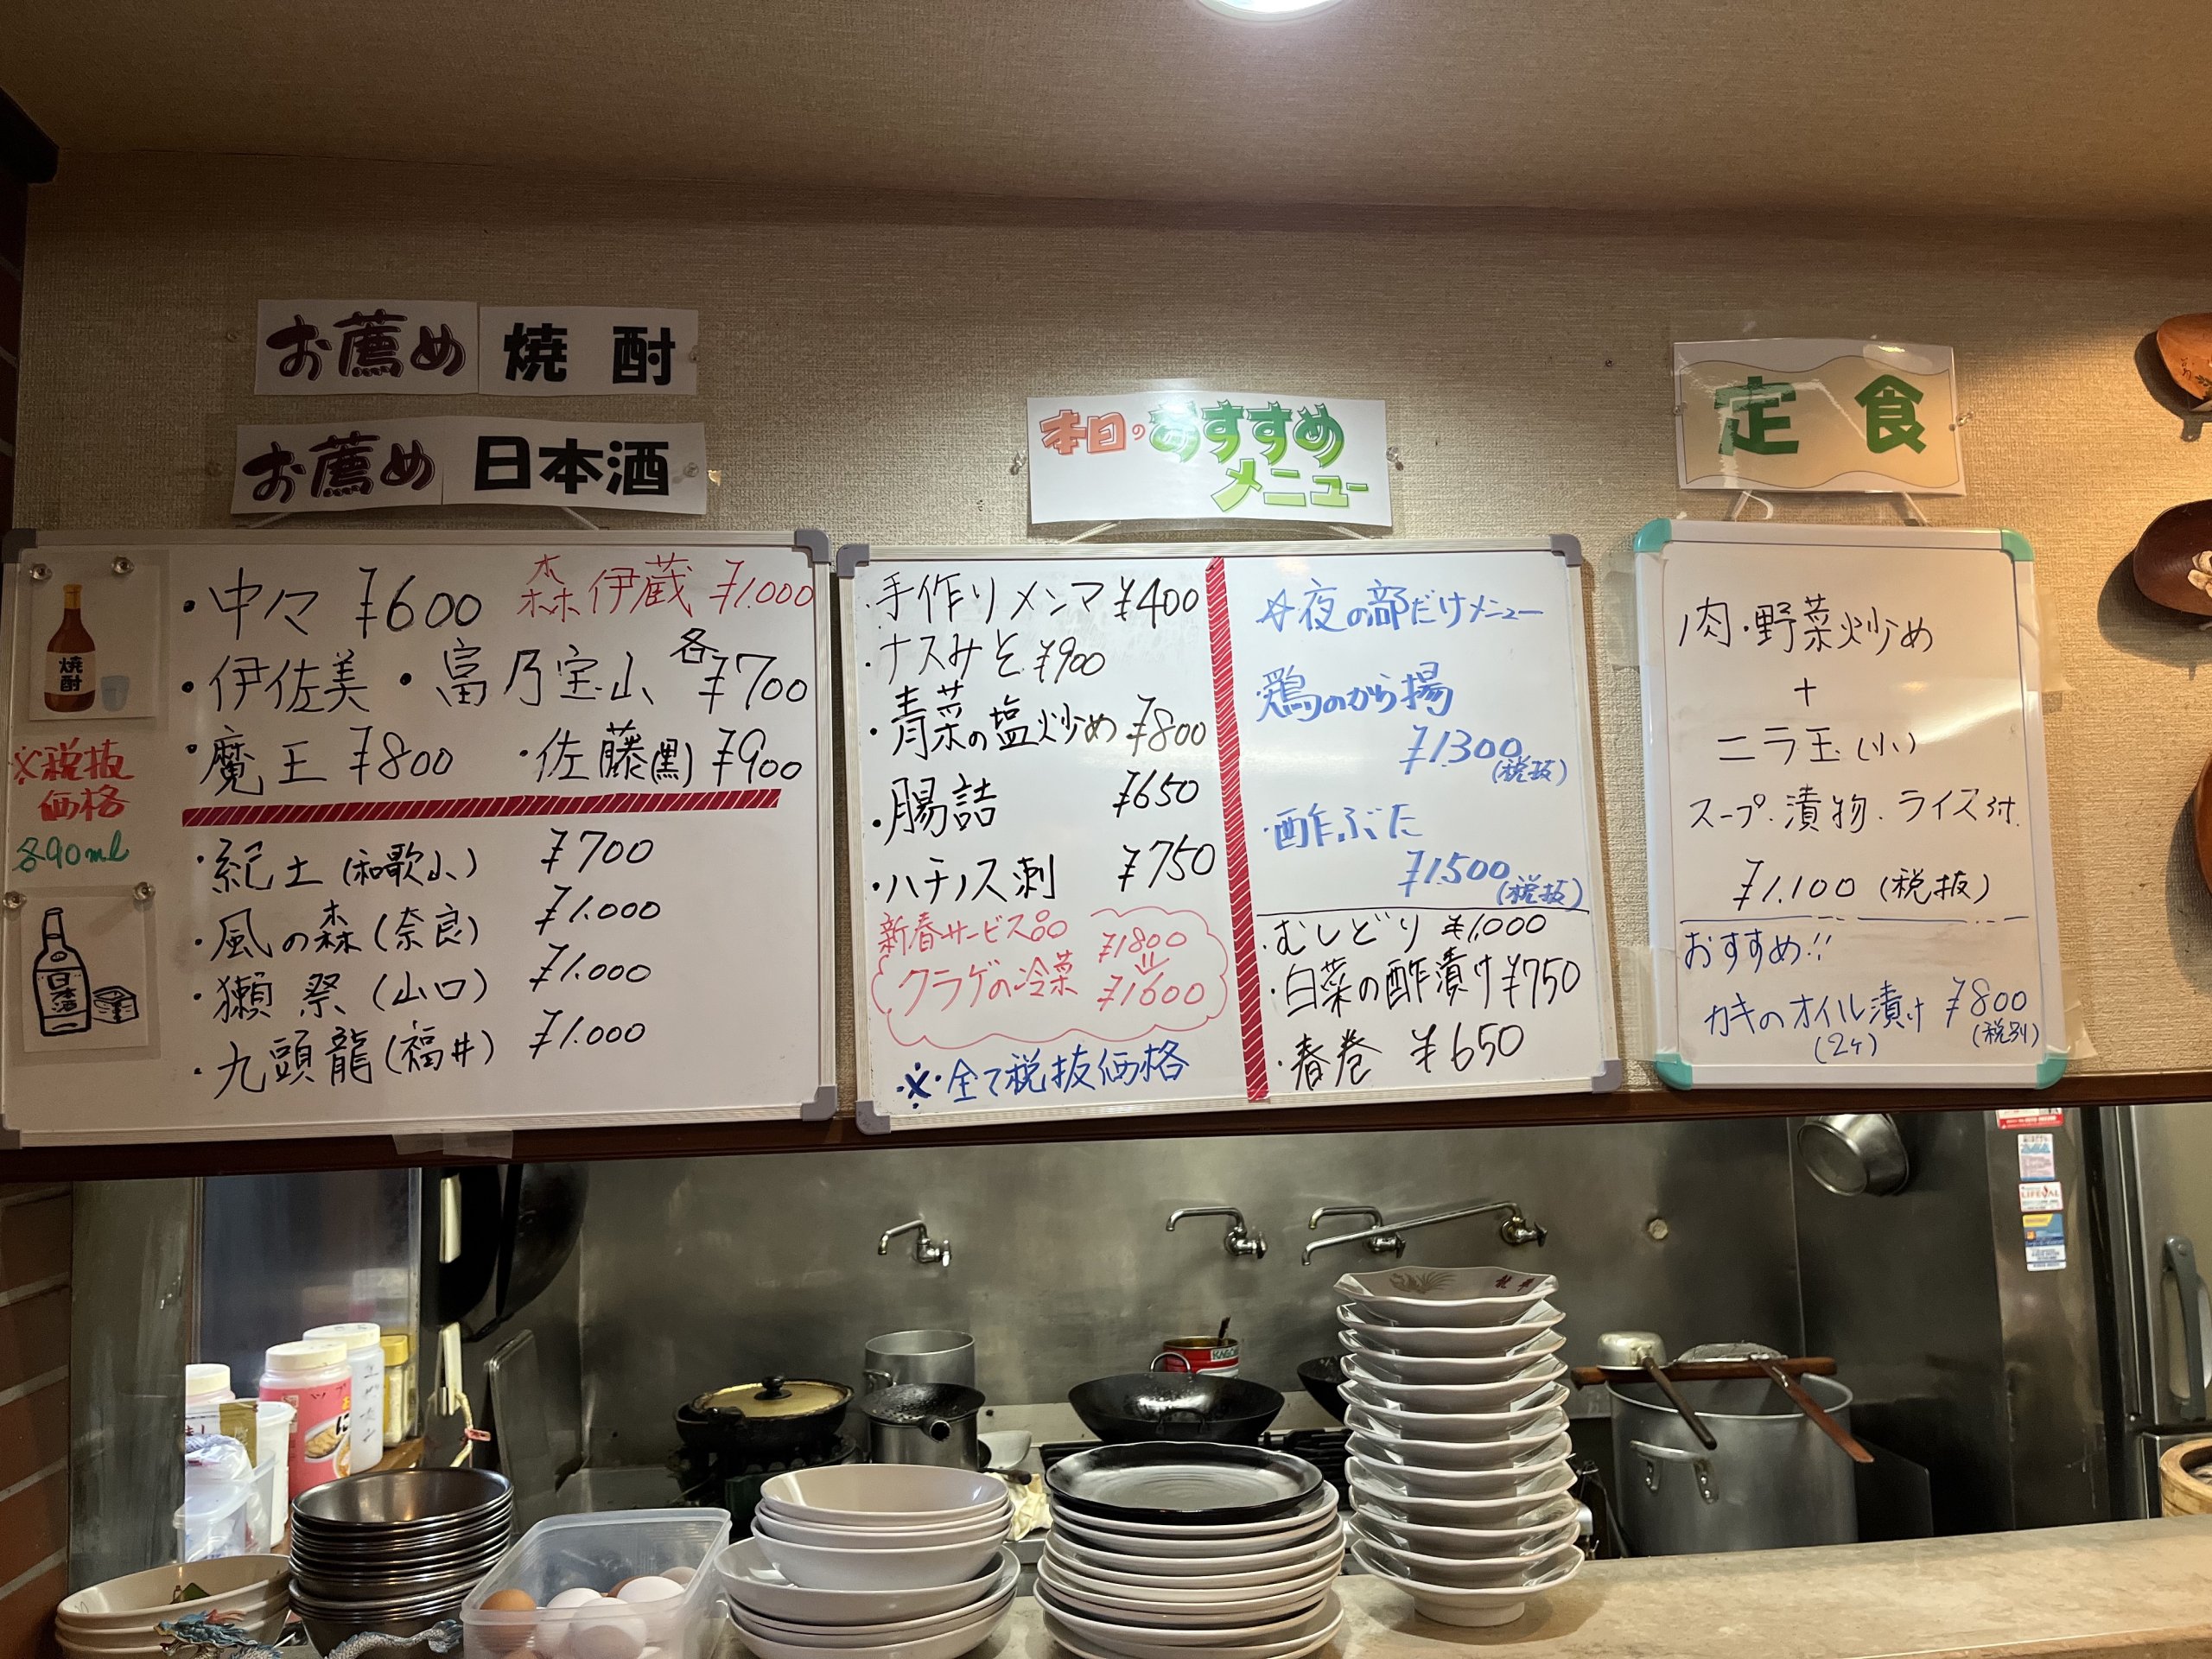 お薦め 焼酎
お薦め 日本酒
焼酎
※税抜
価格
各90ml
日本酒
・中々 ¥600 森伊蔵 ¥1.000
・伊佐美・富乃宝山 各¥700
・魔王 ¥800 ・佐藤(黒) ¥900
・紀土(和歌山) ¥700
・風の森(奈良) ¥1.000
・獺祭(山口) ¥1.000
・九頭龍(福井) ¥1.000
本日のおすすめ
メニュー
・手作りメンマ ¥400
・ナスみそ ¥900
・青菜の塩炒め ¥800
・腸詰 ¥650
・ハチノス刺 ¥750
新春サービス品 ¥1800
クラゲの冷菜 ¥1600
※全て税抜価格
☆夜の部だけメニュー
・鶏のから揚
¥1.300(税抜)
・酢ぶた
¥1.500(税抜)
・むしどり ¥1,000
・白菜の酢漬け ¥750
・春巻 ¥650
定食
肉・野菜炒め
+
ニラ玉(小)
スープ・漬物・ライス付.
¥1.100(税抜)
おすすめ!!
カキのオイル漬け ¥800
(2ケ) (税別)
KAGOME
LIFEVAL